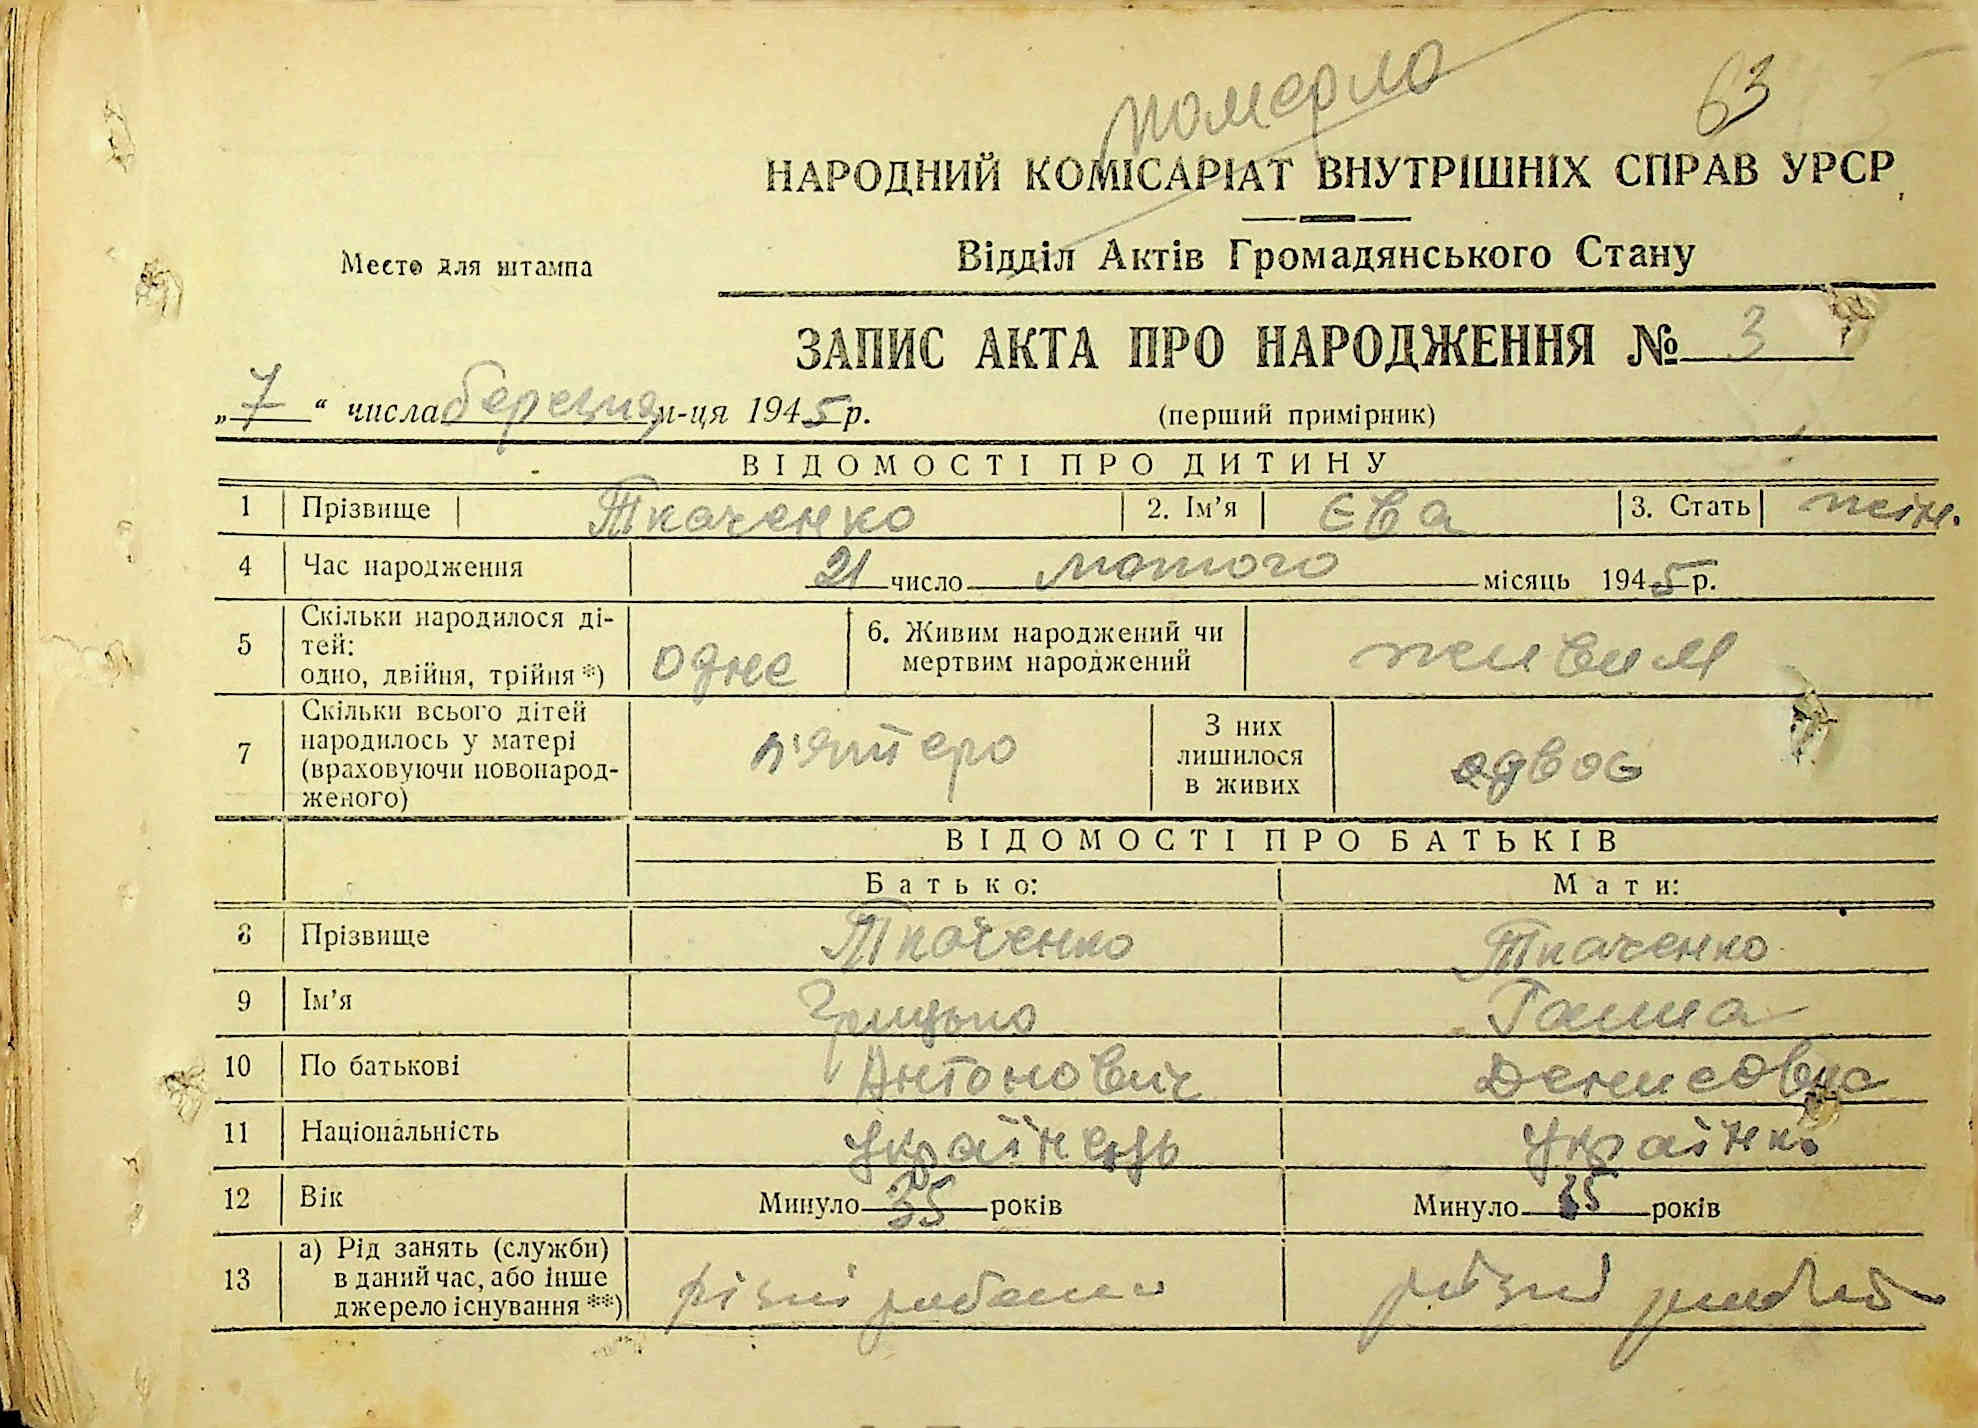 померла
63
НАРОДНИЙ КОМІСАРІАТ ВНУТРІШНІХ СПРАВ УРСР
Место для штампа
Відділ Актів Громадянського Стану
ЗАПИС АКТА ПРО НАРОДЖЕННЯ № 3
„7“ числа березня м-ця 1945 р.
(перший примірник)
ВІДОМОСТІ ПРО ДИТИНУ
1 Прізвище Ткаченко 2. Ім’я Єва 3. Стать жін.
4 Час народження 21 число лютого місяць 1945 р.
5 Скільки народилося ді-
тей:
одно, двійня, трійня *) одне
6. Живим народжений чи
мертвим народжений живим
7 Скільки всього дітей
народилось у матері
(враховуючи новонарод-
женого) п'ятеро
З них
лишилося
в живих двоє
ВІДОМОСТІ ПРО БАТЬКІВ
Батько: Мати:
8 Прізвище Ткаченко Ткаченко
9 Ім’я Грицько Ганна
10 По батькові Антонович Денисовна
11 Національність українець українка
12 Вік Минуло 35 років Минуло 35 років
13 а) Рід занять (служби)
в даний час, або інше
джерело існування **) різні роботи різні роботи